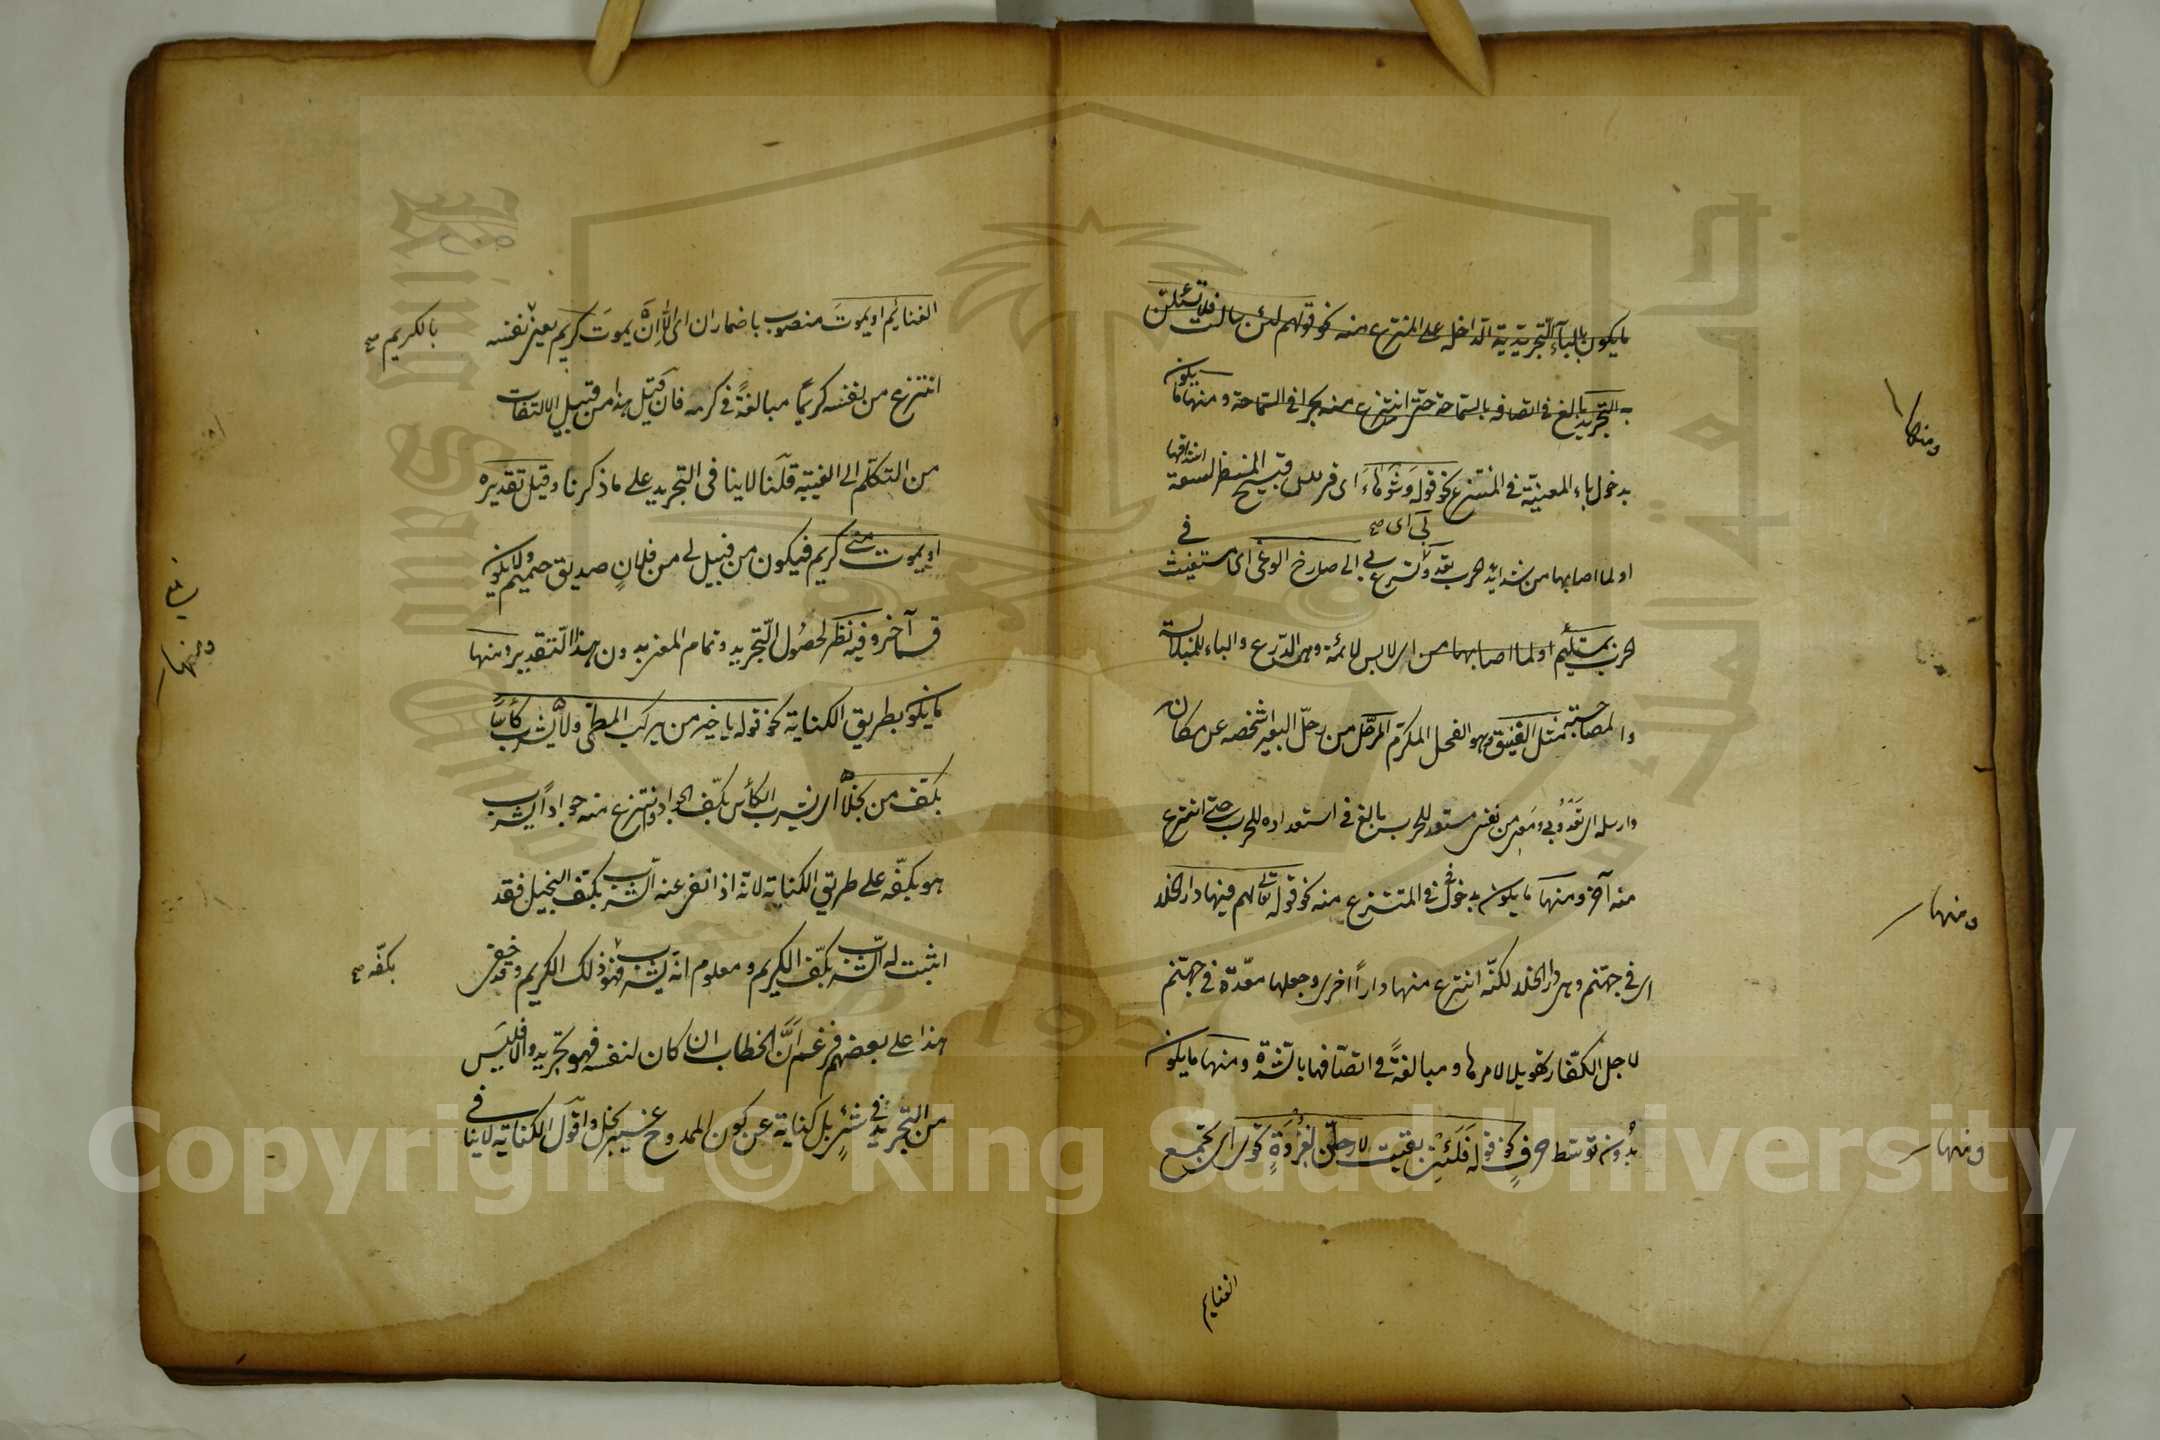 ما يكون بالباء التجريدية الداخلة على المنتزع منه نحو قولهم لئن سألت فلانا لتسئلن
به البحر بالغ في اتصافه بالسماحة حتى انتزع منه بحرا في السماحة ومنها ما يكون
بدخول باء المعية في المنتزع نحو قوله وشوهاء اى فرس قبيح المنظر لسعة اشداقها
او لما اصابها من شدايد الحرب تعدو اى تسرع بي الى صارخ الوغى اى مستغيث في
الحرب بمستلئم اى لابس لائمة وهى الدرع والباء للملابسة
والمصاحبة مثل الفنيق وهو الفحل المكرم المرحّل من رحل البعير اشخصه عن مكانه
وارسله اى تعدو بي ومعى من نفسى مستعد للحرب بالغ في استعداده للحرب حتى انتزع
منه آخر ومنها ما يكون بدخول في في المنتزع منه نحو قوله تعالى لهم فيها دار الخلد
اى في جهنم وهى دار الخلد لكنه انتزع منها دارا اخرى وجعلها معدّة في جهنم
لاجل الكفار تهويلا لامرها ومبالغةً في اتصافها بالشدة ومنها ما يكون
بدون توسط حرفٍ نحو قوله فلئن بقيت لارحلنّ لغزوةٍ تحوى اى تجمع
الغنايم
ومنها
ومنها
ومنها
الغنايم او يموتَ منصوب باضمار ان اى الا ان يموتَ كريم يعنى نفسه
بالكريم صح
انتزع من نفسه كريمًا مبالغةً في كرمه فان قيل هذا من قبيل الالتفات
من التكلم الى الغيبة قلنا لا ينافى التجريد على ما ذكرنا وقيل تقديره
او يموت منى كريم فيكون من قبيل لى من فلانٍ صديق حميم ولا يكون
قسما آخر وفيه نظر لحصول التجريد وتمام المعنى بدون هذا التقدير ومنها
ومنها
ما يكون بطريق الكناية نحو قوله يا خير من يركب المطى ولا يشرب كأسًا
بكف من بخلا اى يشرب الكأس بكف الجواد انتزع منه جوادًا يشرب
هو بكفه على طريق الكناية لانه اذا نفى عنه الشرب بكف البخيل فقد
اثبت له الشرب بكف الكريم ومعلوم انه يشرب فهو ذلك الكريم وقد خفى
بكفه صح
هذا على بعضهم فزعم انّ الخطاب ان كان لنفسه فهو تجريد والا فليسَ
من التجريد في شئ بل كناية عن كون الممدوح غير بخيل واقول الكناية لا ينافى
Copyright © King Saud University